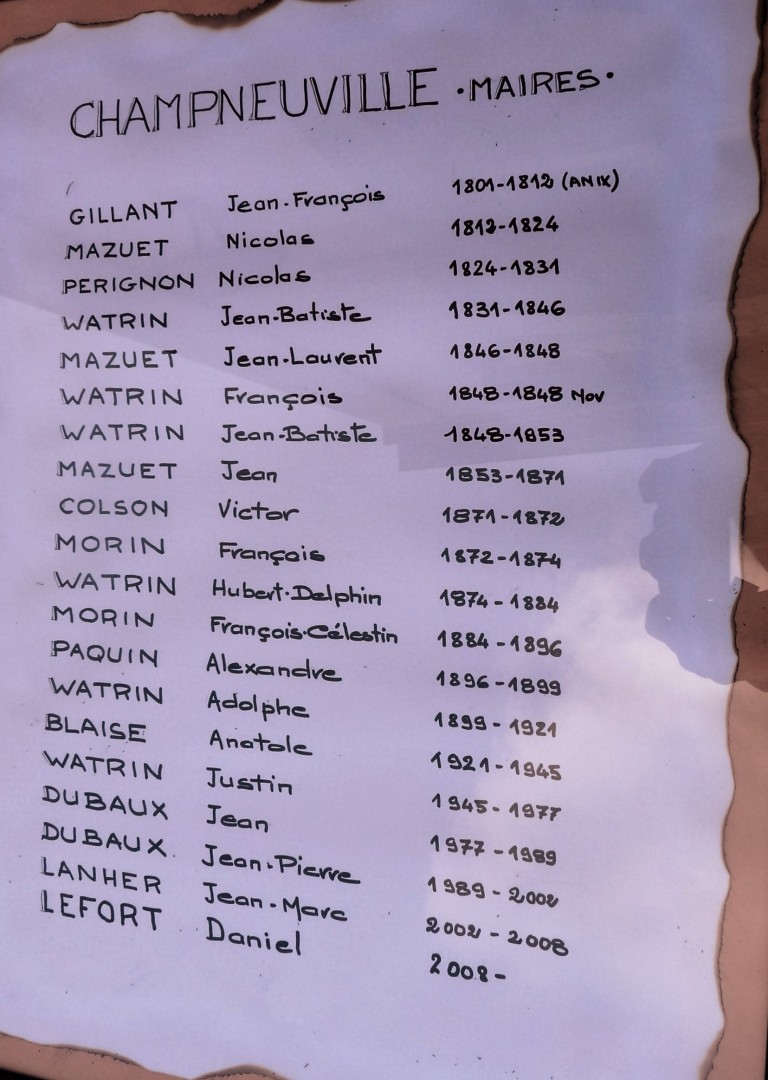 CHAMPNEUVILLE • MAIRES •
GILLANT Jean-François 1801-1812 (AN IX)
MAZUET Nicolas 1812-1824
PERIGNON Nicolas 1824-1831
WATRIN Jean-Batiste 1831-1846
MAZUET Jean-Laurent 1846-1848
WATRIN François 1848-1848 Nov
WATRIN Jean-Batiste 1848-1853
MAZUET Jean 1853-1871
COLSON Victor 1871-1872
MORIN François 1872-1874
WATRIN Hubert-Delphin 1874-1884
MORIN François-Célestin 1884-1896
PAQUIN Alexandre 1896-1899
WATRIN Adolphe 1899-1921
BLAISE Anatole 1921-1945
WATRIN Justin 1945-1977
DUBAUX Jean 1977-1989
DUBAUX Jean-Pierre 1989-2002
LANHER Jean-Marc 2002-2008
LEFORT Daniel 2008-